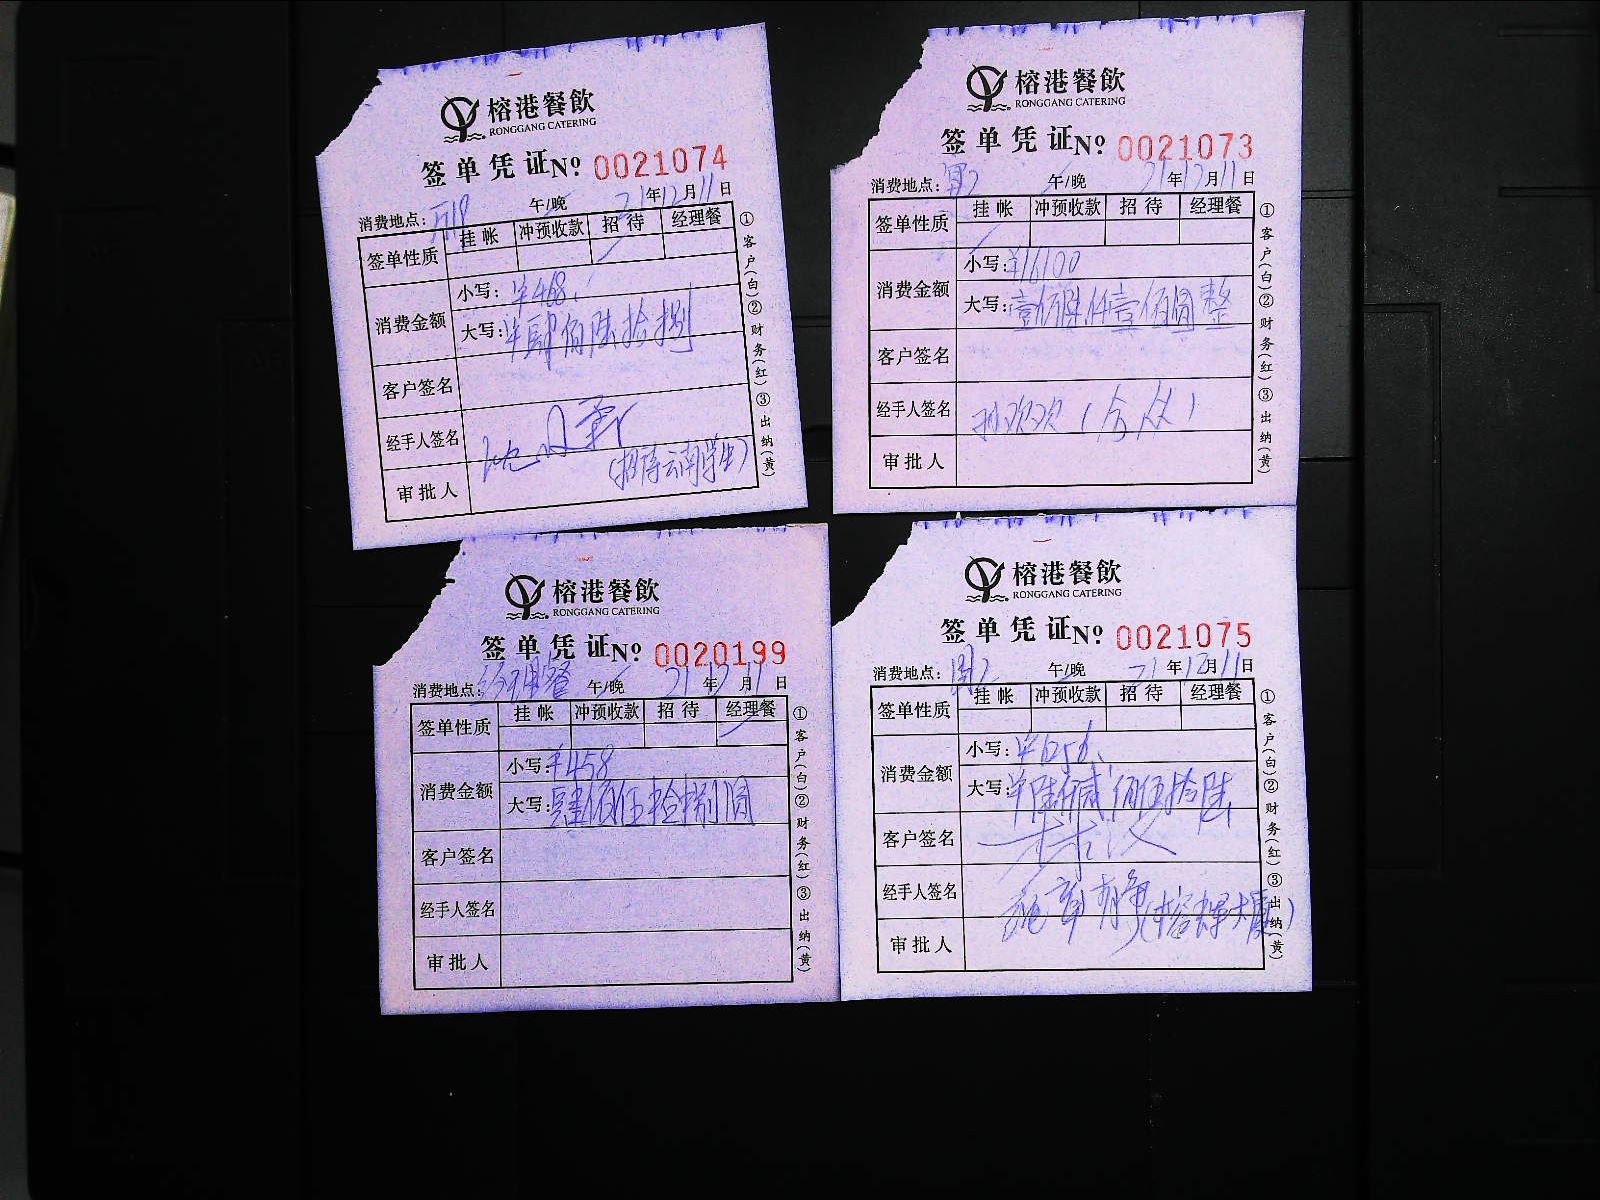 榕港餐飲
RONGGANG CATERING
签单凭证 Nº 0021074
消费地点: 午/晚 21年12月11日
签单性质 挂帐 冲预收款 招待 经理餐
消费金额 小写: ¥468.
大写: ¥肆佰陆拾捌
客户签名
经手人签名
(招待云南学生)
审批人
①客户(白)②财务(红)③出纳(黄)
榕港餐飲
RONGGANG CATERING
签单凭证 Nº 0021073
消费地点: 午/晚 21年12月11日
签单性质 挂帐 冲预收款 招待 经理餐
消费金额 小写: ¥16100
大写: 整
客户签名
经手人签名
审批人
①客户(白)②财务(红)③出纳(黄)
榕港餐飲
RONGGANG CATERING
签单凭证 Nº 0020199
消费地点: 经理餐 午/晚 21年12月11日
签单性质 挂帐 冲预收款 招待 经理餐
消费金额 小写: ¥458
大写: 肆佰伍拾捌圆
客户签名
经手人签名
审批人
①客户(白)②财务(红)③出纳(黄)
榕港餐飲
RONGGANG CATERING
签单凭证 Nº 0021075
消费地点: 午/晚 21年12月11日
签单性质 挂帐 冲预收款 招待 经理餐
消费金额 小写:
大写: 佰伍拾陆
客户签名
经手人签名
审批人
①客户(白)②财务(红)③出纳(黄)